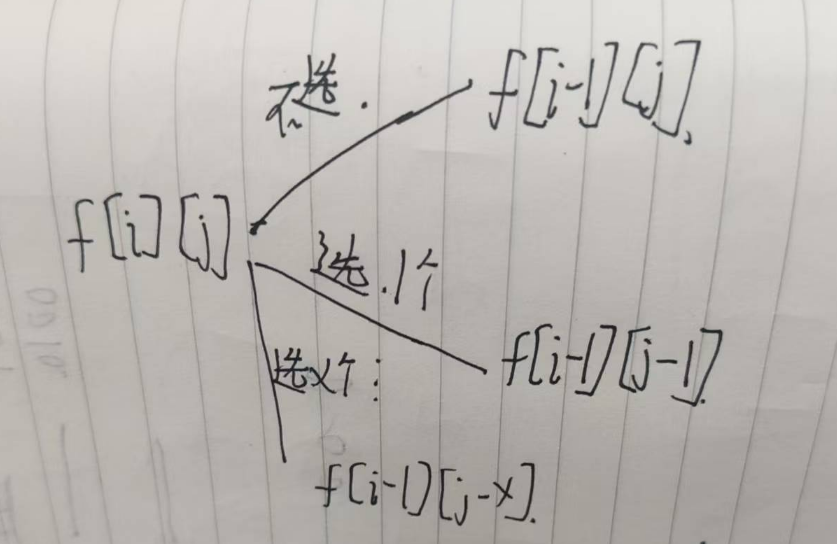 不选.
f[i-1][j].
f[i][j]
选.1个
选x个⋮
f[i-1][j-1].
f[i-1][j-x].